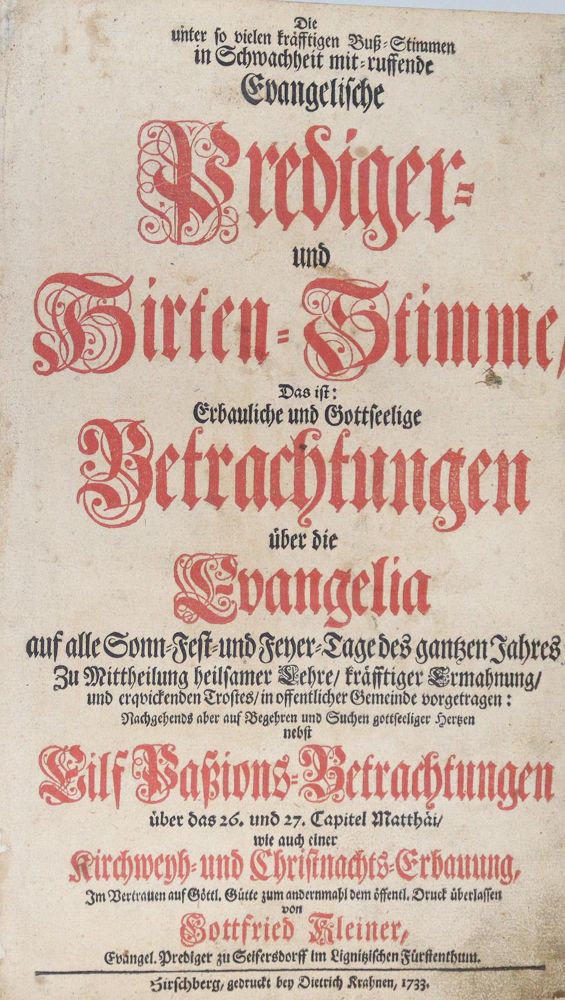 Die
unter so vielen kräfftigen Buß-Stimmen
in Schwachheit mit-ruffende
Evangelische
Prediger-
und
Hirten-Stimme/
Das ist:
Erbauliche und Gottseelige
Betrachtungen
über die
Evangelia
auf alle Sonn-Fest-und Feyer-Tage des gantzen Jahres
Zu Mittheilung heilsamer Lehre/ kräfftiger Ermahnung/
und erqvickenden Trostes/ in offentlicher Gemeinde vorgetragen:
Nachgehends aber auf Begehren und Suchen gottseeliger Hertzen
nebst
Eilf Paßions-Betrachtungen
über das 26. und 27. Capitel Matthäi/
wie auch einer
Kirchweyh- und Christnachts-Erbauung,
Im Vertrauen auf Göttl. Gütte zum andernmahl dem öffentl. Druck überlassen
von
Gottfried Kleiner,
Evangel. Prediger zu Seifersdorff im Lignitzischen Fürstenthum.
Hirschberg, gedruckt bey Dietrich Krahnen, 1733.